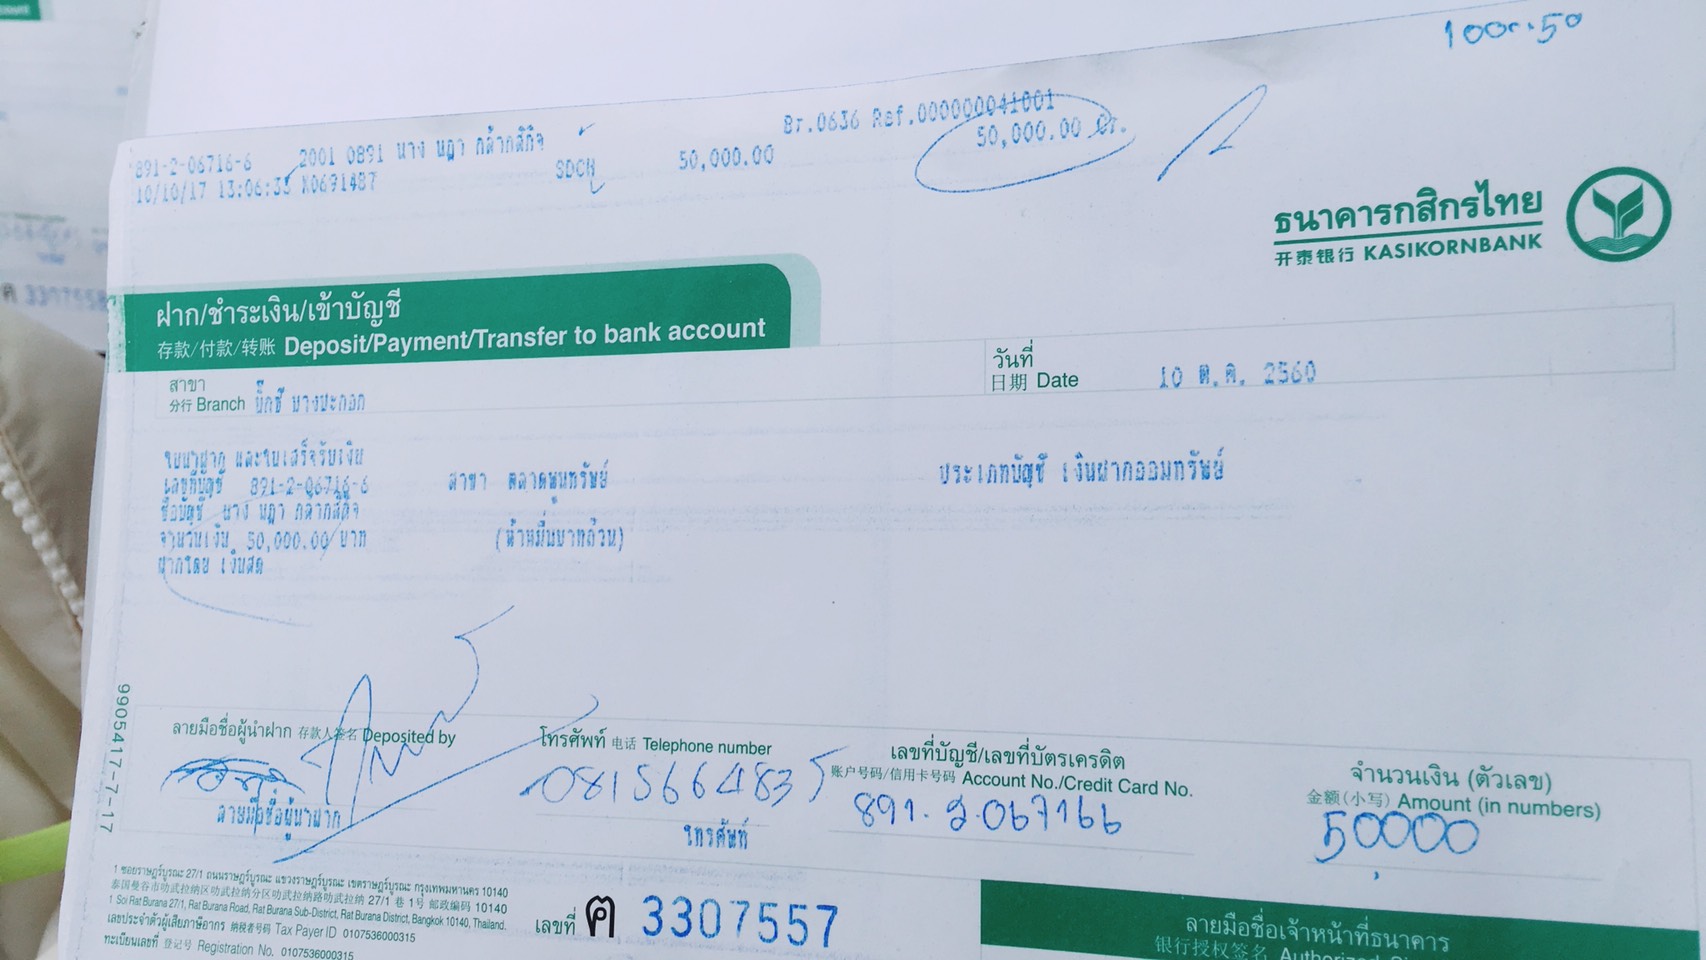 1000.50
891-2-06716-6 2001 0891 นาง นฎา กล้ากสิกิจ SDCH 50,000.00 Br.0636 Ref.000000041001
10/10/17 13:06:33 K0691487 50,000.00 Cr.
ธนาคารกสิกรไทย
开泰银行 KASIKORNBANK
ฝาก/ชำระเงิน/เข้าบัญชี
存款/付款/转账 Deposit/Payment/Transfer to bank account
สาขา
分行 Branch บิ๊กซี บางปะกอก
วันที่
日期 Date 10 ต.ค. 2560
ใบนำฝาก และใบเสร็จรับเงิน
เลขที่บัญชี 891-2-06716-6 สาขา ตลาดพูนทรัพย์ ประเภทบัญชี เงินฝากออมทรัพย์
ชื่อบัญชี นาง นฎา กล้ากสิกิจ
จำนวนเงิน 50,000.00 บาท (ห้าหมื่นบาทถ้วน)
ฝากโดย เงินสด
ลายมือชื่อผู้นำฝาก 存款人签名 Deposited by
ลายมือชื่อผู้นำฝาก
โทรศัพท์ 电话 Telephone number
0815664835
โทรศัพท์
เลขที่บัญชี/เลขที่บัตรเครดิต
账户号码/信用卡号码 Account No./Credit Card No.
891.2.067166
จำนวนเงิน (ตัวเลข)
金额(小写) Amount (in numbers)
50000
9905417-7-17
1 ซอยราษฎร์บูรณะ 27/1 ถนนราษฎร์บูรณะ แขวงราษฎร์บูรณะ เขตราษฎร์บูรณะ กรุงเทพมหานคร 10140
泰国曼谷市叻武拉纳区叻武拉纳分区叻武拉纳路叻武拉纳 27/1 巷 1号 邮政编码 10140
1 Soi Rat Burana 27/1, Rat Burana Road, Rat Burana Sub-District, Rat Burana District, Bangkok 10140, Thailand.
เลขประจำตัวผู้เสียภาษีอากร 纳税者号码 Tax Payer ID 0107536000315
ทะเบียนเลขที่ 登记号 Registration No. 0107536000315
เลขที่ ฅ 3307557
ลายมือชื่อเจ้าหน้าที่ธนาคาร
银行授权签名